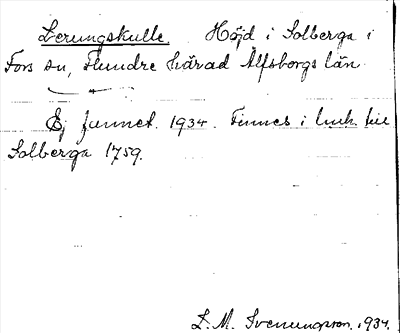 Lerungskulle. Höjd i Solberga i
Fors sn, Flundre härad Älfsborgs län
Ej funnet. 1934. Finnes i huk. till
Solberga 1759.
L. M. Svenungsson. 1934.